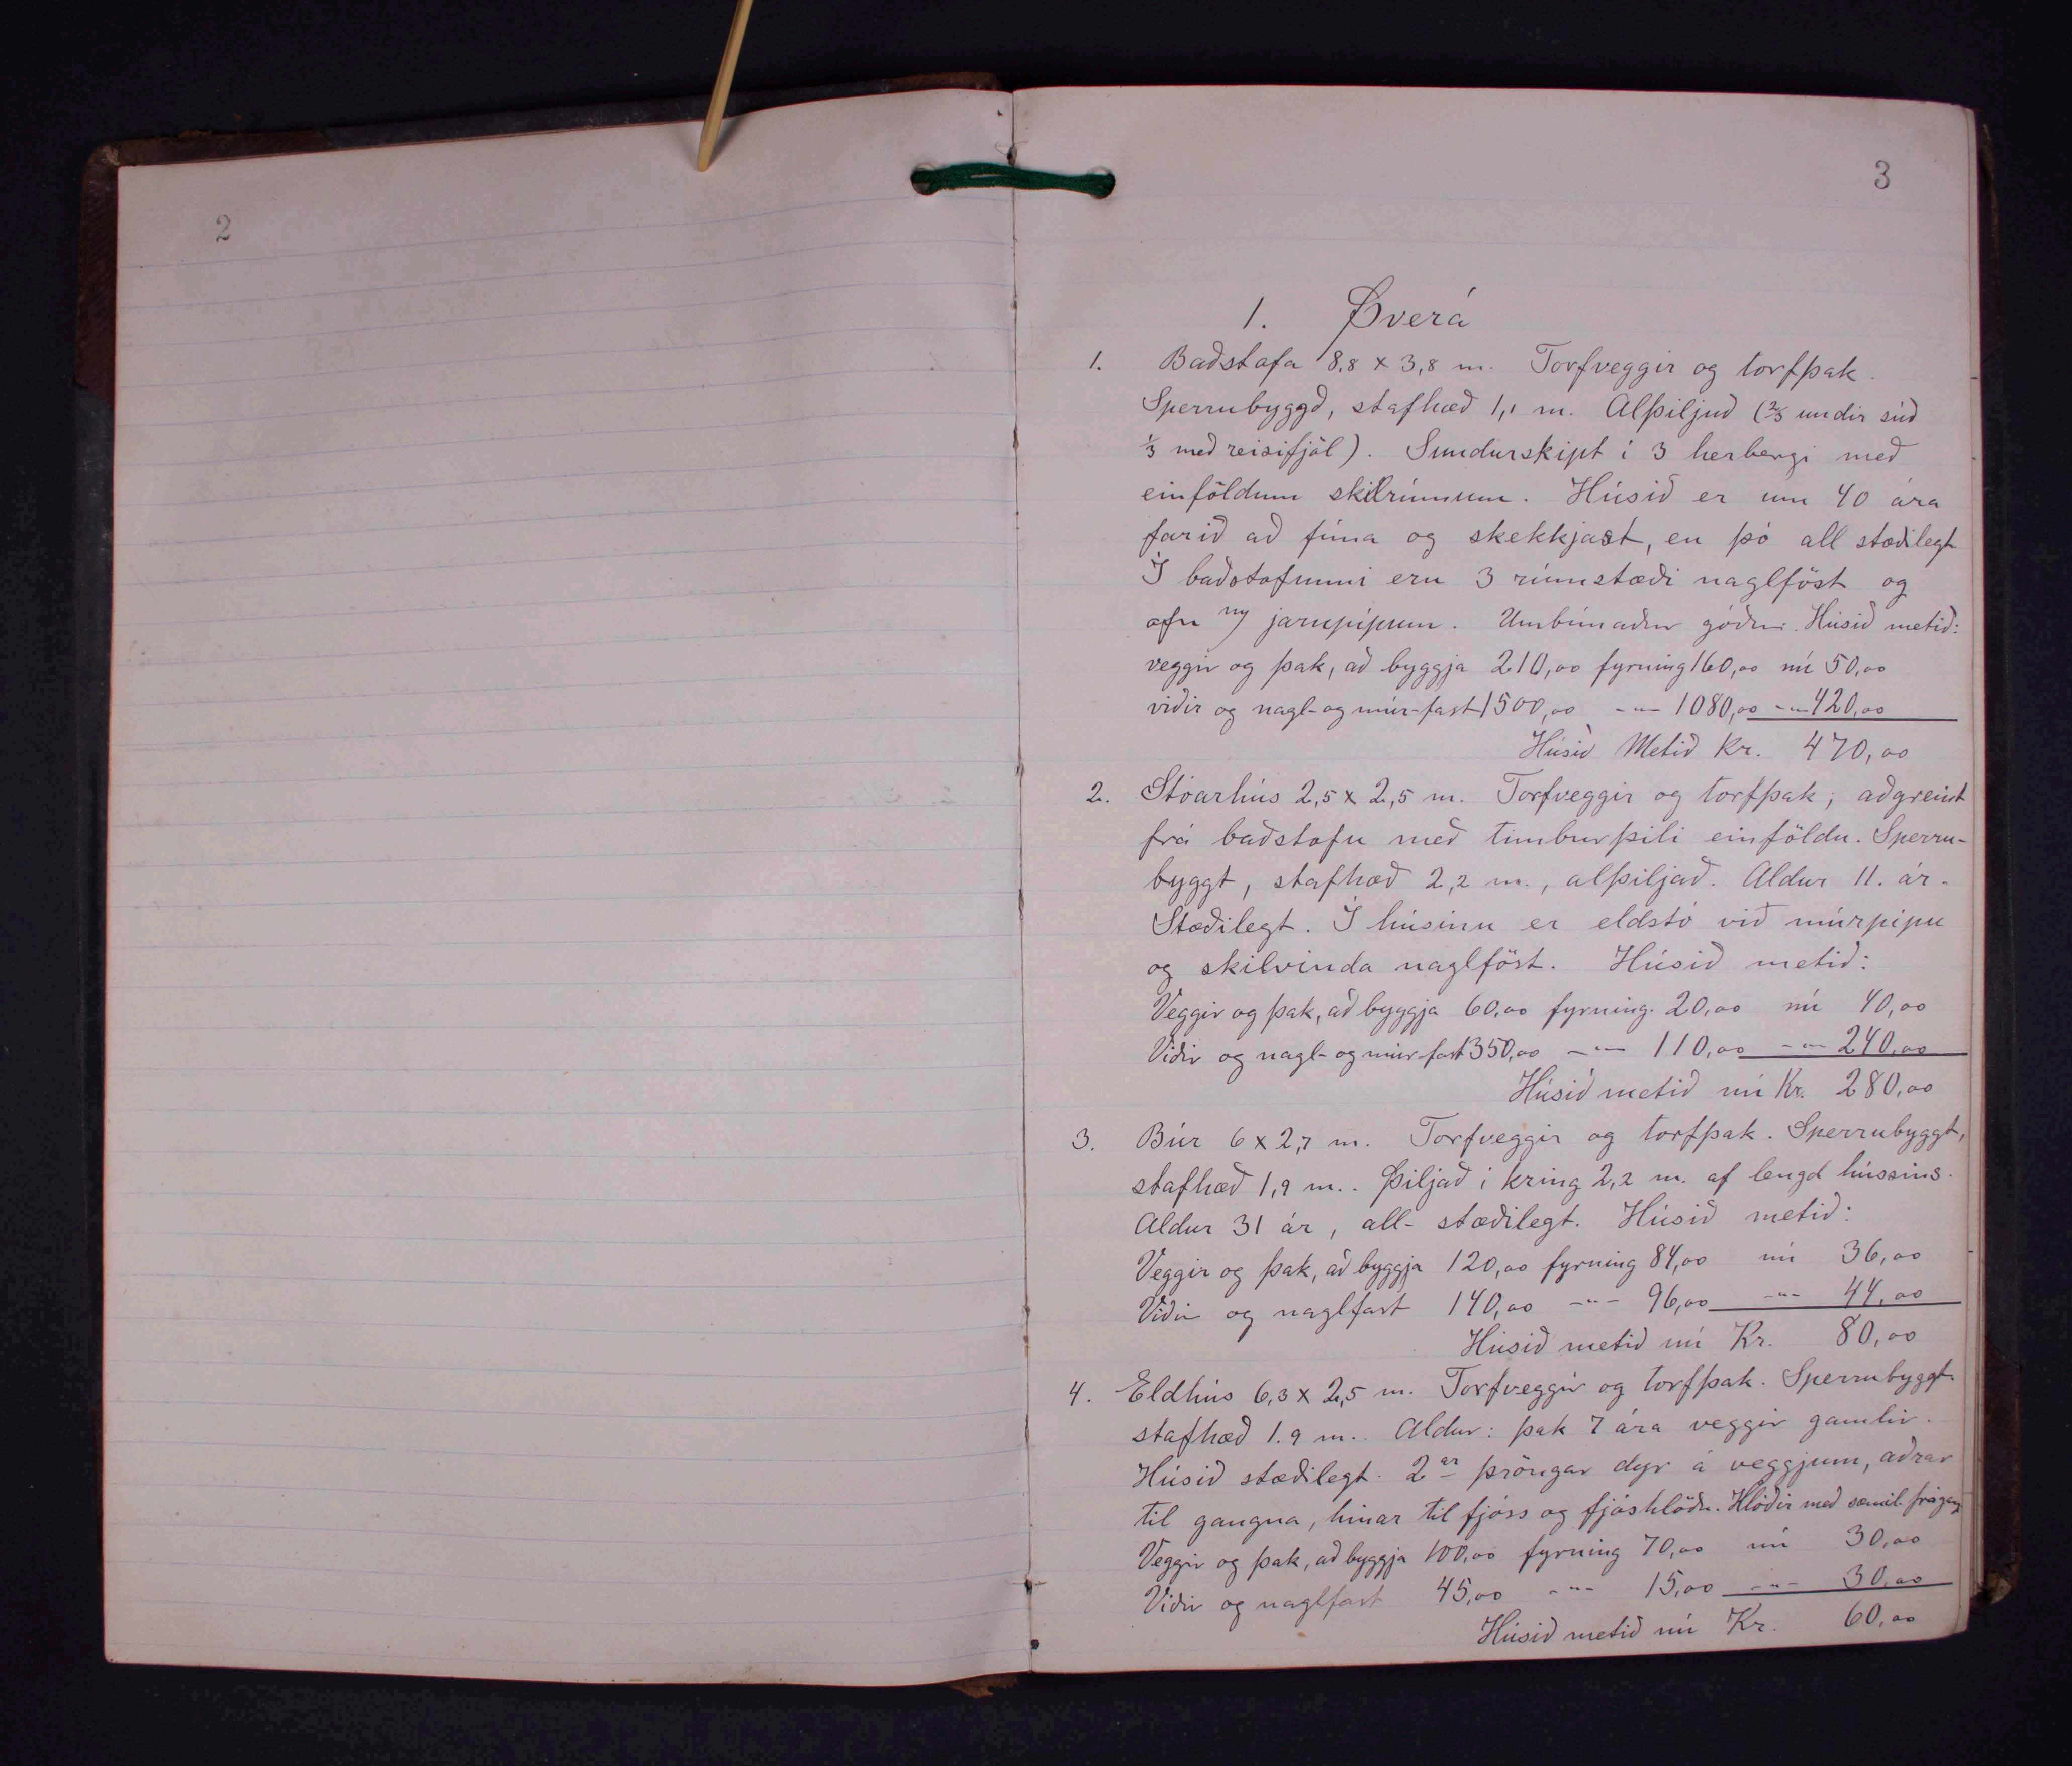 2
3
1. Þverá
1. Baðstafa 8,8 x 3,8 m. Torfveggir og torfþak.
Sperrubyggð, stafhæð 1,1 m. Alþiljuð (2/3 undir súð
1/3 með reisifjöl). Sundurskipt í 3 herbergi með
einföldum skilrúmum. Húsið er um 40 ára
farið að fúna og skekkjast, en þó all stæðilegt
Í baðstofunni eru 3 rúmstæði naglföst og
ofn m/ járnpípum. Umbúnaður góður. Húsið metið:
veggir og þak, að byggja 210,00 fyrning 160,00 nú 50,00
viðir og nagl- og múr-fast 1500,00 -"- 1080,00 -"- 420,00
Húsið Metið Kr. 470,00
2. Stóarhús 2,5 x 2,5 m. Torfveggir og torfþak; aðgreint
frá baðstofu með timburþili einföldu. Sperru-
byggt, stafhæð 2,2 m., alþiljað. Aldur 11. ár.
Stæðilegt. Í húsinu er eldstó við múrpípu
og skilvinda naglföst. Húsið metið:
Veggir og þak, að byggja 60,00 fyrning. 20,00 nú 40,00
Viðir og nagl- og múr-fast 350,00 -"- 110,00 -"- 240,00
Húsið metið nú Kr. 280,00
3. Búr 6 x 2,7 m. Torfveggir og torfþak. Sperrubyggt,
stafhæð 1,9 m.. Þiljað í kring 2,2 m. af lengd hússins.
Aldur 31 ár, all- stæðilegt. Húsið metið:
Veggir og þak, að byggja 120,00 fyrning 84,00 nú 36,00
Viðir og naglfast 140,00 -"- 96,00 -"- 44,00
Húsið metið nú Kr. 80,00
4. Eldhús 6,3 x 2,5 m. Torfveggir og torfþak. Sperrubyggt
stafhæð 1.9 m.. Aldur: þak 7 ára veggir gamlir.
Húsið stæðilegt. 2ar þröngar dyr á veggjum, aðrar
til gangna, hinar til fjóss og fjóshlöðu. Hlóðir með sæmil. frágang
Veggir og þak, að byggja 100,00 fyrning 70,00 nú 30,00
Viðir og naglfast 45,00 -"- 15,00 -"- 30,00
Húsið metið nú Kr. 60,00